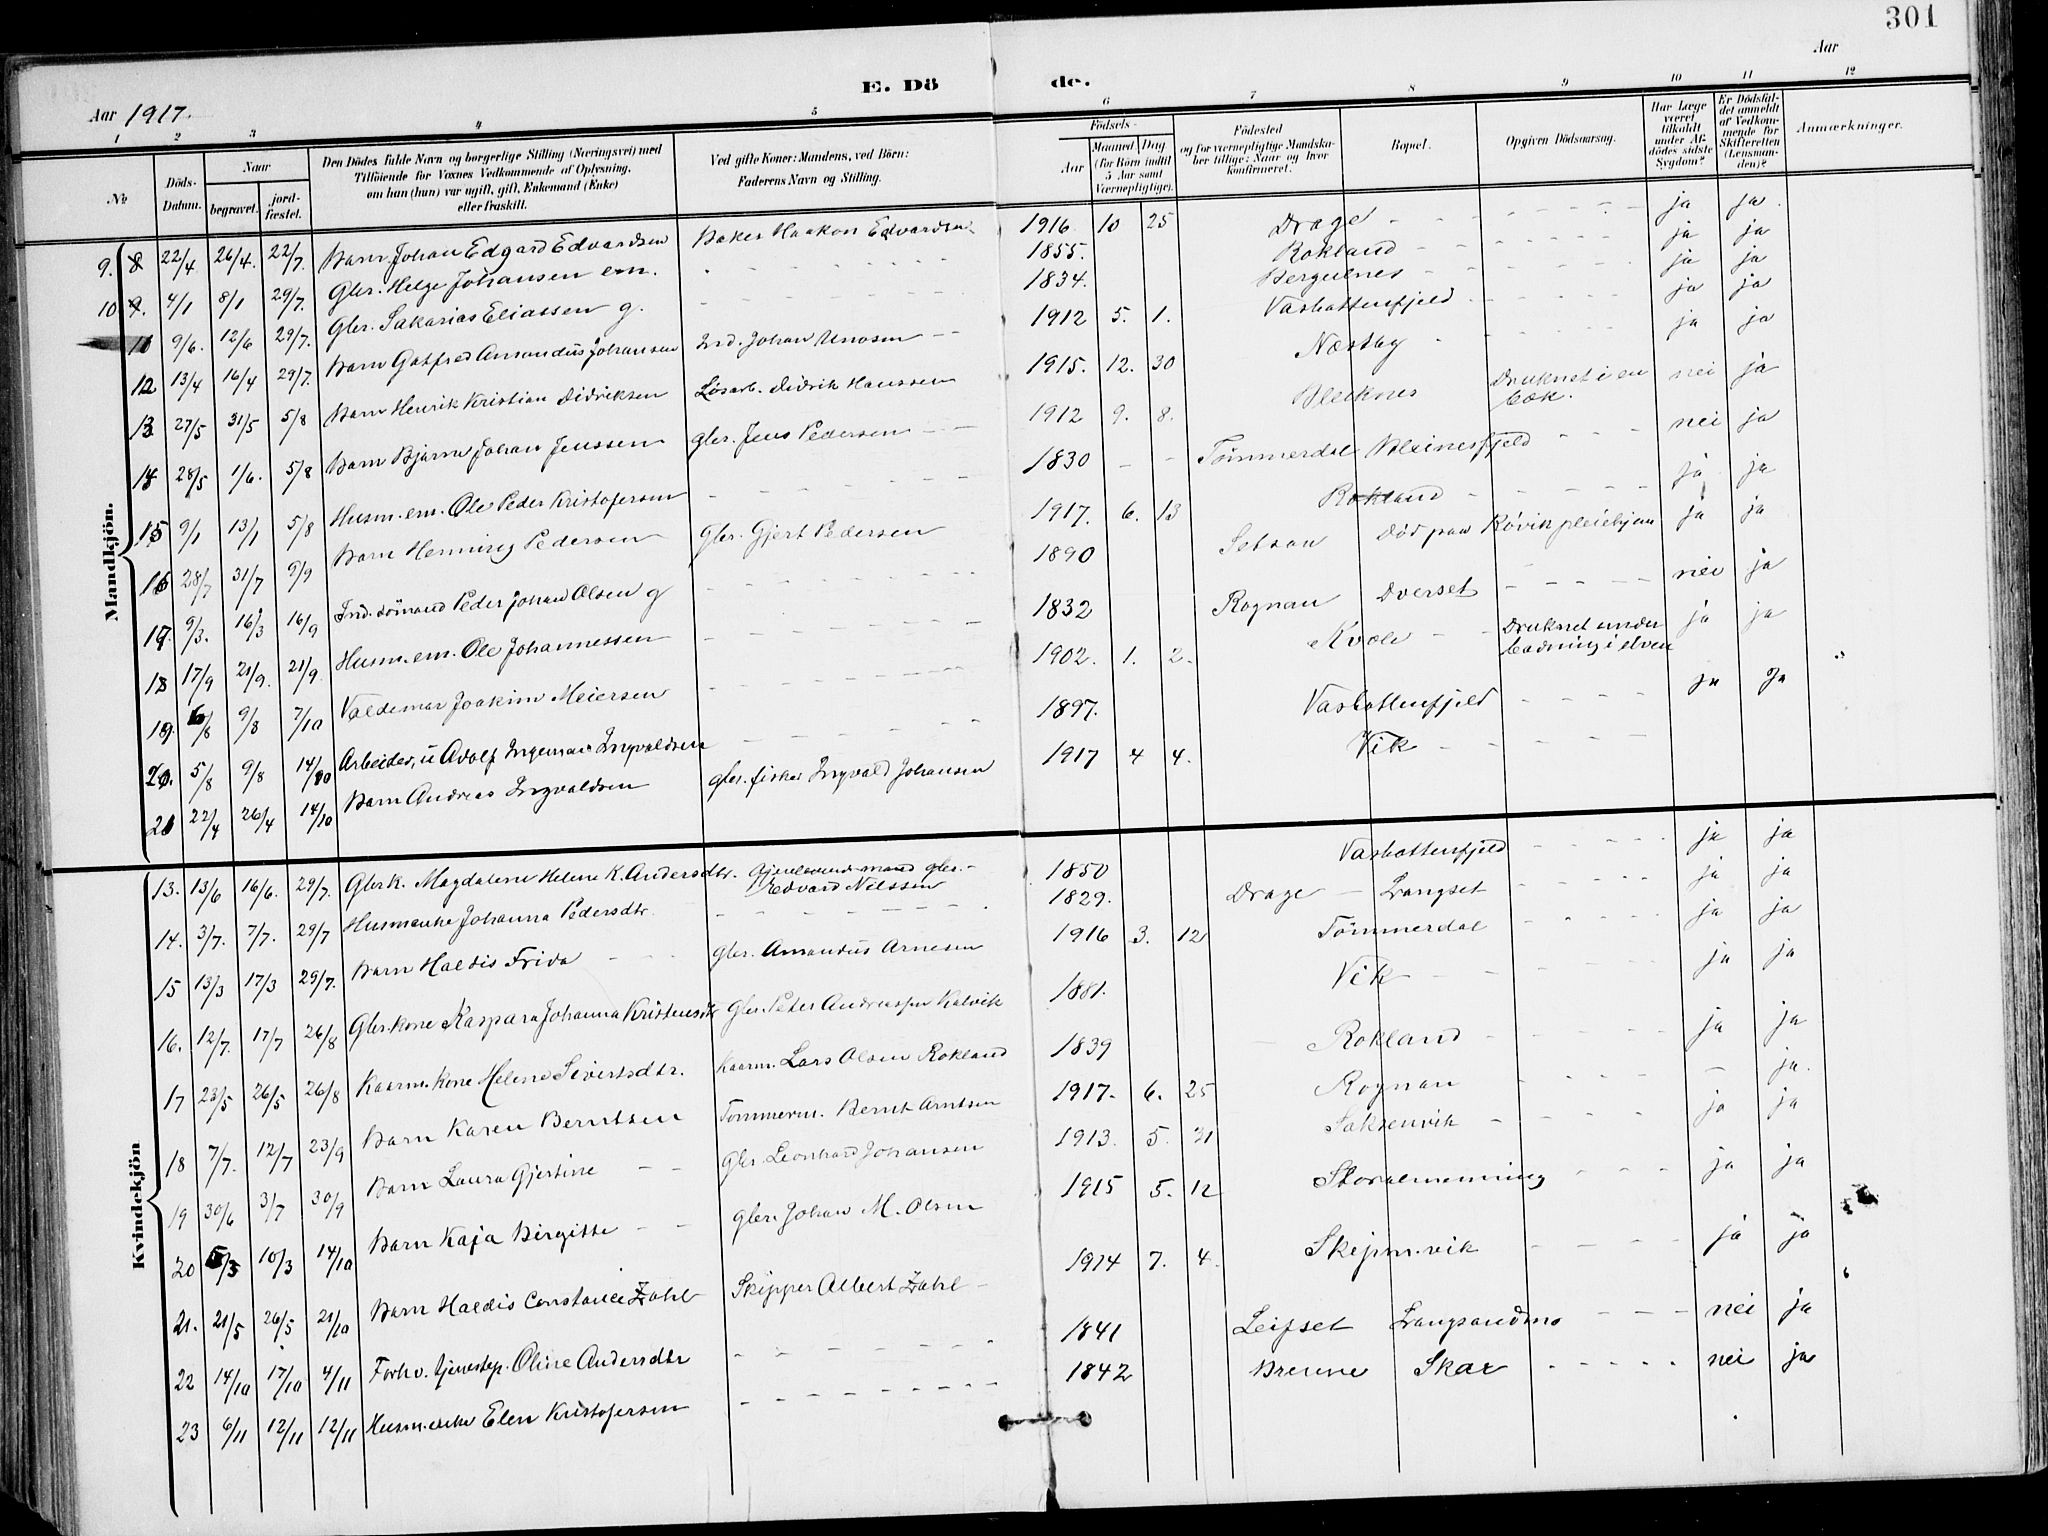 301
E. Dö de.
Aar 1917.
Aar
1 2 3 4 5 6 7 8 9 10 11 12
No
Döds-Datum.
Naar
begravet.
jord-fæstet.
Den Dödes fulde Navn og borgerlige Stilling (Næringsvei) med
Tilföiende for Voxnes Vedkommende af Oplysning,
om han (hun) var ugift, gift, Enkemand (Enke)
eller fraskilt.
Ved gifte Koner: Mandens, ved Börn:
Faderens Navn og Stilling.
Födsels-
Aar
Maaned Dag
(for Börn indtil
5 Aar samt
Værnepligtige).
Födested
og for værnepligtige Mandska-
ber tillige: Naar og hvor
konfirmeret.
Bopæl.
Opgiven Dödsaarsag.
Har Læge
været
tilkaldt
under Af-
dödes sidste
Sygdom?
Er Dödsfal-
det anmeldt
af Vedkom-
mende for
Skifteretten
(Lensman-
den)?
Anmærkninger.
Mandkjön.
9. 8 22/4 26/4. 22/7. Barn Johan Edgard Edvardsen Baker Haakon Edvardsen 1916 10 25 Drage - - - ja ja.
10 9. 4/1 8/1 29/7. Gbr. Helge Johansen em. - - - 1855. Rokland - - - ja ja
11 9/6. 12/6 29/7. Gbr. Sakarias Eliassen g. - - - 1834. - - - ja ja
12 13/4 16/4 29/7. Barn Gotfred Amandus Johansen Ind. Johan Unosen - - 1912 5. 1. Vasbottenfjeld - - - ja ja
13 27/5 31/5 5/8 Barn Henrik Kristian Didriksen Løsarb. Didrik Hanssen 1915. 12. 30 Næstby - - - ja ja
14 28/5 1/6. 5/8 Barn Bjarne Johan Jenssen gbr. Jens Pedersen - - 1912 9. 8. Druknet i en bæk. nei ja
15 9/1 13/1 5/8 Husm. em. Ole Peder Kristofersen - - - 1830 - - Tømmerdal - - - nei ja
16 28/7 31/7 9/9 Barn Henning Pedersen gbr. Gjert Pedersen 1917. 6. 13 Rokland - - - ja ja
17 9/3. 16/3 16/9 Ind. sømand Peder Johan Olsen g - - - 1890 Setsaa Død paa Røvik pleiehjem ja ja
18 17/9 21/9. 21/9. Husm. em. Ole Johannessen - - - 1832 Rognan Dverset - - - nei ja
19. 6/8 9/8 7/10 Valdemar Joakim Meiersen - - - 1902. 1. 2. Kvæle - - Druknet under badning i elven ja ja
20. 5/8 9/8 14/10 Arbeider, u Adolf Ingemar Ingvaldsen - - - 1897. Vasbottenfjeld - - - ja ja
21 22/4 26/4 14/10 Barn Andreas Ingvaldsen gbr. fisker Ingvald Johansen 1917 4 4. Vik - - -
Kvindekjön
13. 13/6 16/6. 29/7. Gbr.k. Magdalene Helene K. Andersdtr. gbr. Edvard Nilssen 1850 Vasbottenfjeld - - - ja ja
14. 3/7. 7/7. 29/7 Husm enke Johanna Pedersdtr - - - 1829. Drage - Langset - - - ja ja
15 13/3 17/3 29/7. Barn Haldis Frida - - - gbr. Amandus Arnesen 1916 3. 12 Tømmerdal - - - ja ja
16. 12/7. 17/7 26/8 Gbr. kone Kaspara Johanna Kristensdtr Gbr. Peter Andreassen Kalvik 1881. Vik - - - ja ja
17 23/5 26/5 26/8 Kaarm. kone Helene Sivertsdtr. Kaarm. Lars Olsen Rokland 1839 - Rokland - - - ja ja
18 7/7. 12/7 23/9 Barn Karen Berntsen Tømmerm. Bernt Arntsen 1917. 6. 25 Rognan - - - - ja.
19 30/6 3/7 30/9 Barn Laura Gjertine - - Gbr. Leonhard Johansen 1913. 5. 21 Saksenvik - - ja ja
20 5/3 10/3 14/10 Barn Kaja Birgitte - - gbr. Johan M. Olsen 1915 5. 12 Storalmenning - - - ja ja
21. 21/5 26/5 21/10 Barn Haldis Constance Zahl Skipper Albert Zahl - 1914 7. 4. Skejrn.vik - - - ja ja
22 14/10 17/10 4/11 Forhv. tjenestep. Oline Andersdtr - - - 1841 Leifset Langsandmo - - - nei ja
23 6/11 12/11 12/11 Husm. enke Elen Kristofersen - - - 1842 Brenne Skar - - - nei ja